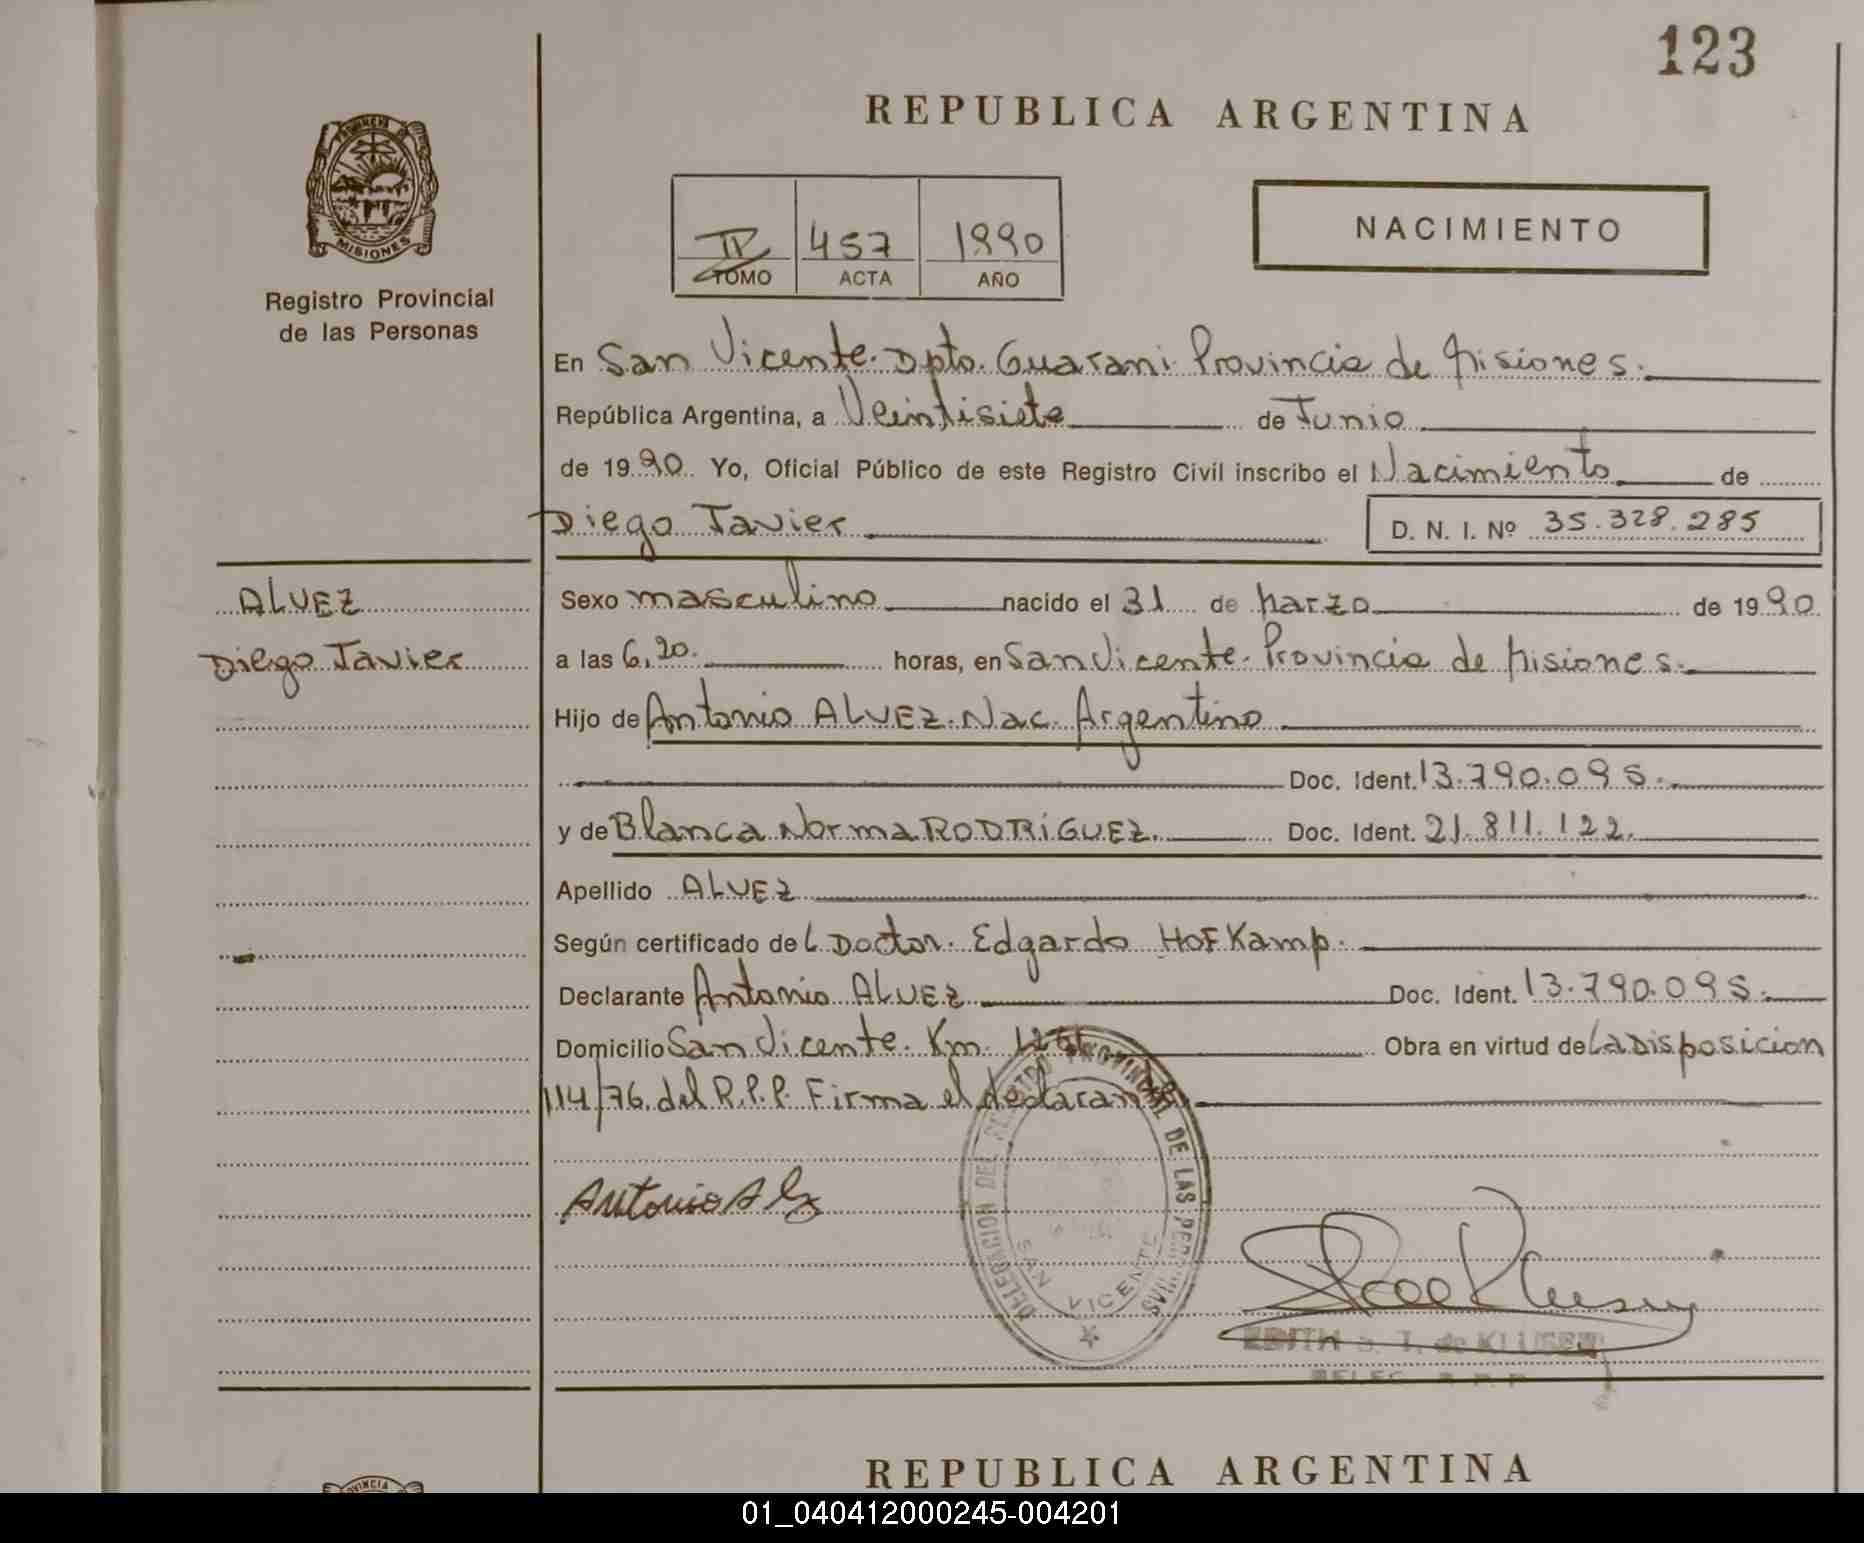 123
REPUBLICA ARGENTINA
PROVINCIA DE
MISIONES
Registro Provincial
de las Personas
TOMO
457 ACTA
1990 AÑO
NACIMIENTO
En San Vicente. Dpto. Guarani Provincia de Misiones.
República Argentina, a Veintisiete de Junio
de 1990 Yo, Oficial Público de este Registro Civil inscribo el Nacimiento de
Diego Javier D. N. I. Nº 35.328.285
ALVEZ
Diego Javier
Sexo masculino nacido el 31 de Marzo de 1990
a las 6,20. horas, en San Vicente. Provincia de Misiones.
Hijo de Antonio ALVEZ. Nac. Argentino
Doc. Ident. 13.790.095.
y de Blanca Norma RODRIGUEZ. Doc. Ident. 21.811.122.
Apellido ALVEZ
Según certificado del Doctor. Edgardo HOFKamp.
Declarante Antonio ALVEZ Doc. Ident. 13.790.095.
Domicilio San Vicente. Km. Obra en virtud de La Disposicion
114/76 del R.P.P. Firma el declarante
Antonio Alz
DELEGACION DEL REGISTRO PROVINCIAL DE LAS PERSONAS
SAN VICENTE
EDITH S. T. de KLUSEN
DELEG. R. P. P.
REPUBLICA ARGENTINA
01_040412000245-004201